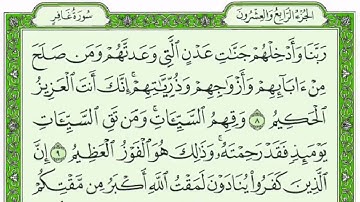 الجزء الرابع والعشرون
سورة غافر
رَبَّنَا وَأَدْخِلْهُمْ جَنَّٰتِ عَدْنٍ ٱلَّتِى وَعَدتَّهُمْ وَمَن صَلَحَ
مِنْ ءَابَآئِهِمْ وَأَزْوَٰجِهِمْ وَذُرِّيَّٰتِهِمْ ۚ إِنَّكَ أَنتَ ٱلْعَزِيزُ
ٱلْحَكِيمُ ٨ وَقِهِمُ ٱلسَّيِّـَٔاتِ ۚ وَمَن تَقِ ٱلسَّيِّـَٔاتِ
يَوْمَئِذٍ فَقَدْ رَحِمْتَهُۥ ۚ وَذَٰلِكَ هُوَ ٱلْفَوْزُ ٱلْعَظِيمُ ٩ إِنَّ
ٱلَّذِينَ كَفَرُوا۟ يُنَادَوْنَ لَمَقْتُ ٱللَّهِ أَكْبَرُ مِن مَّقْتِكُمْ